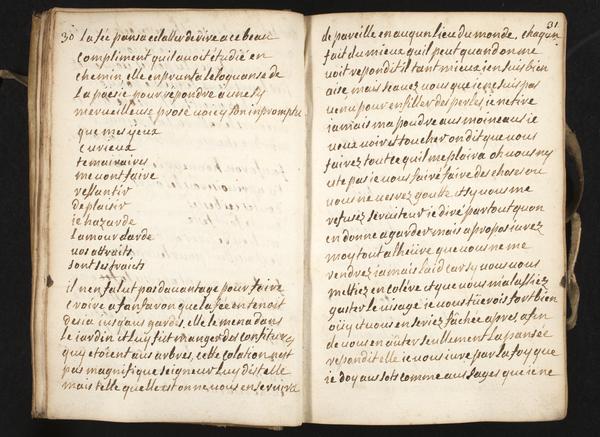 30
la fée pansa éclatter de rire a ce beau
compliment quil avoit étudié en
chemin, elle enprunta leloquanse de
la poësie pour répondre a une sy
merveilleuse prose voicy son inpromptu
que mes yeux
curieux
temairaires
me vont faire
ressantir
de plaisir
ie hazarde
lamour darde
vos attraits
sont ses traits
il nen falut pas davantage pour faire
croire a fanfaron que la fée en tenoit
desia iusqaux gardes, elle le mena dans
le jardin et luy fit manger des confitures
quy etoient aux arbres, cette colation nest
pas magnifique seigneur luy dist elle
mais telle quelle est on ne vous en servira
31
de pareille en auqun lieu du monde, chaqun
fait du mieux quil peut quand on me
voit respondit il tant mieux ien suis bien
aise mais scavez vous que ie ne suis pas
venu pour enfiller des perles ie ne tire
iamais ma poudre aux moineaux ie
veux voir et toucher on dit que vous
faivez tout ce quil me plaira oh vous ny
ute pas ie vous faire faire des choses ou
vous ne verrez goutte et sy vous me
refusez serviteur ie diré par tout quon
en donne a garder mais a propos iurez
moy tout a lheüre que vous ne me
vendrez iamais laid car sy vous vous
mettiez en colère et que vous malassiez
gaster le visage ie vous tüerois fort bien
oüy et vous en seriez fâchée apres, afin
de vous en aüter seullement la pansée
respondit elle ie vous iure par la foy que
ie doy aux sots comme aux sages que ie ne